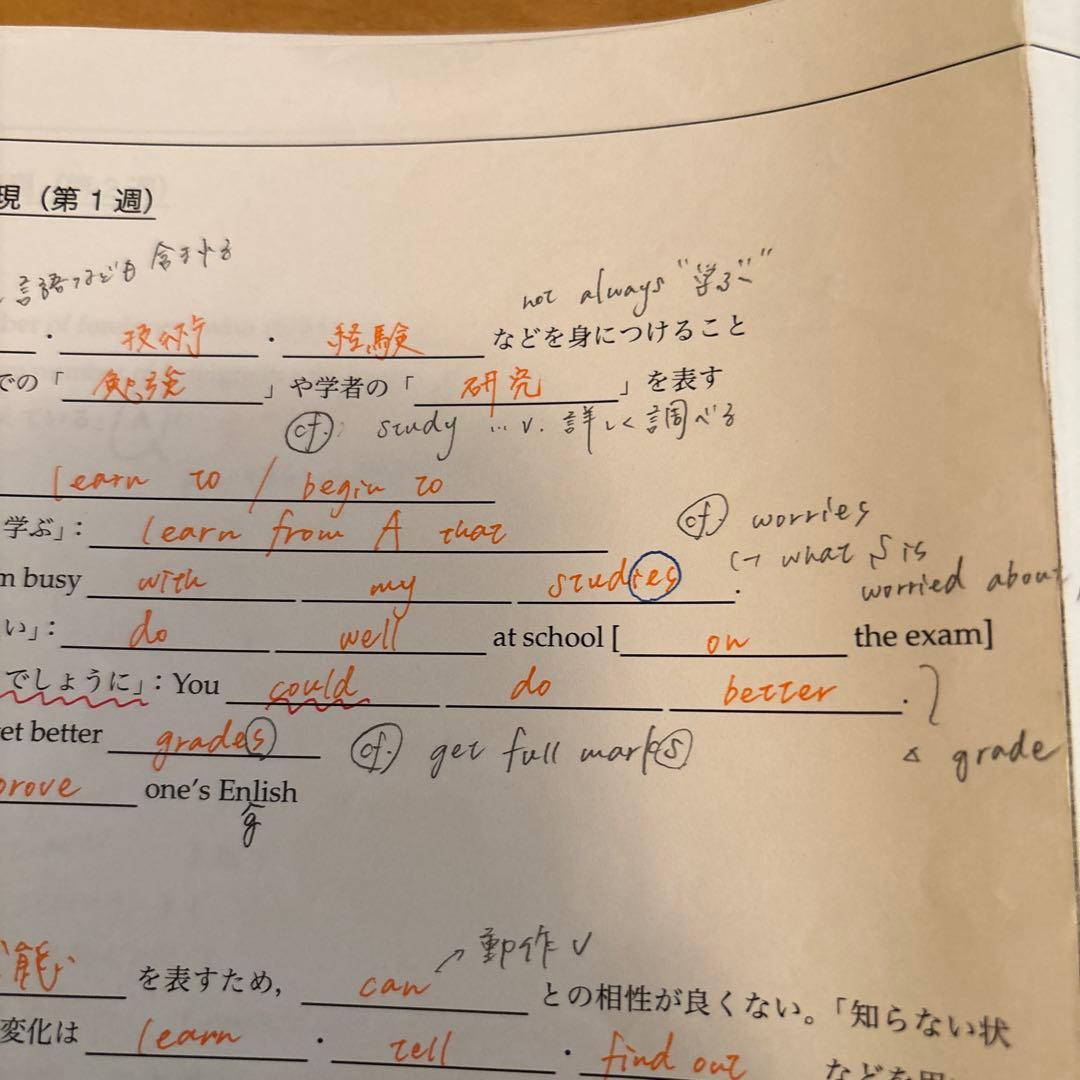 現（第1週）
言語なども 含まれる
not always "学ぶ"
・技術・経験 などを身につけること
での「勉強」や学者の「研究」を表す
cf. study … v. 詳しく調べる
learn to / begin to
学ぶ」: learn from A that
cf. worries
↪ what S is
worried about
m busy with my studies.
い」: do well at school [ on the exam]
でしょうに」: You could do better.
et better grades
cf. get full marks
grade
prove one's Enlish
g
動作 V
を表すため, can との相性が良くない。「知らない状
変化は learn・tell・find out などを用